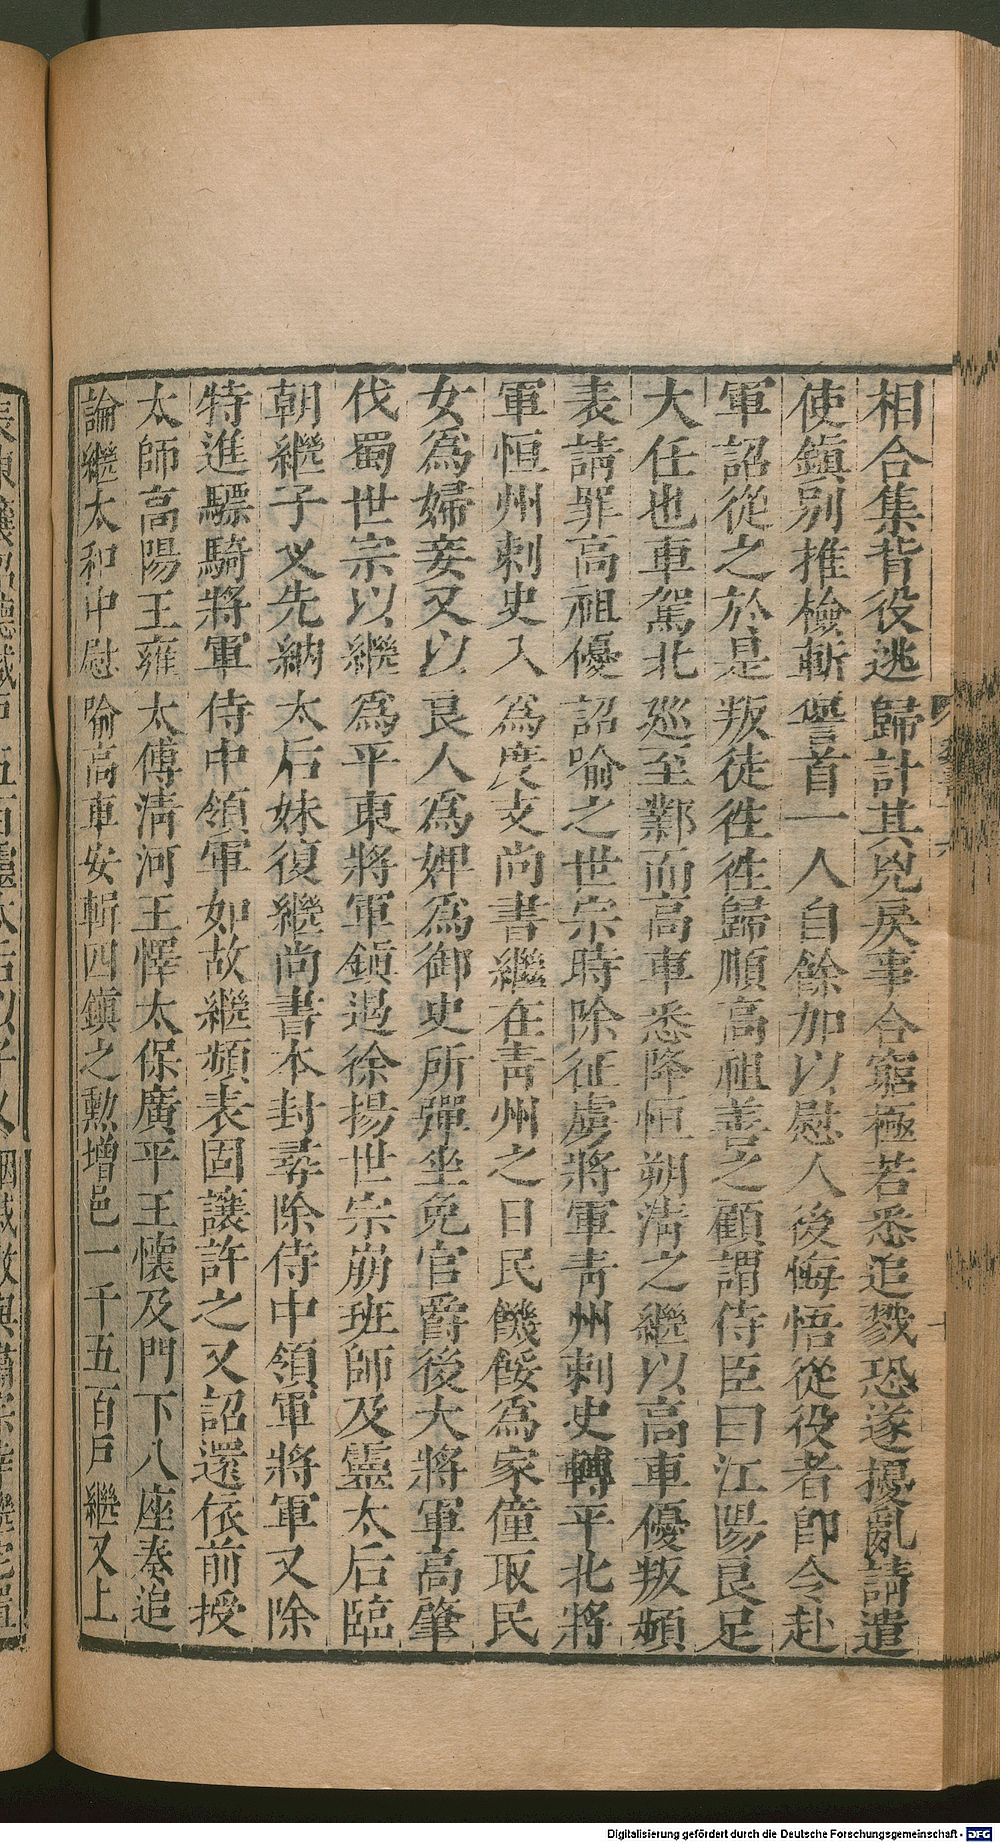 相合集背役逃歸計其兇戾事合窮極若悉追戮恐遂擾亂請遣
使鎮別推檢斬愆首一人自餘加以慰人後悔悟從役者即令赴
軍詔從之於是叛徒徃徃歸順高祖善之顧謂侍臣曰江陽良足
大任也車駕北巡至鄴而高車悉降恒朔清之繼以高車優叛頻
表請罪高祖優詔喻之世宗時除征虜將軍青州刺史轉平北將
軍恒州刺史入為度支尚書繼在青州之日民饑餒為家僮取民
女為婦妾又以良人為婢為御史所彈坐免官爵後大將軍高肇
伐蜀世宗以繼為平東將軍鎮遏徐揚世宗崩班師及靈太后臨
朝繼子义先納太后妹復繼尚書本封尋除侍中領軍將軍又除
特進驃騎將軍侍中領軍如故繼頻表固讓許之又詔還依前授
太師高陽王雍太傅清河王懌太保廣平王懷及門下八座奏追
論繼太和中慰喻高車安輯四鎮之勳增邑一千五百戶繼又上
Digitalisierung gefördert durch die Deutsche Forschungsgemeinschaft - DFG